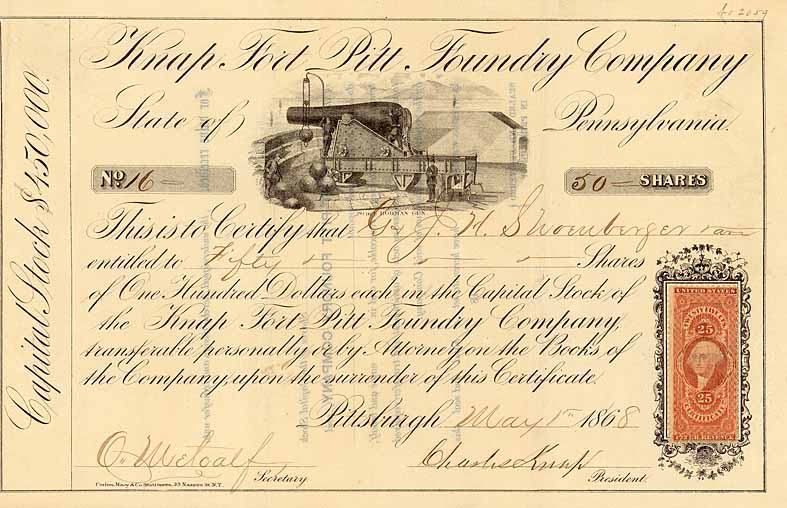 No 2059
Knap Fort Pitt Foundry Company
State of Pennsylvania.
No 16
50 SHARES
RODMAN GUN
This is to Certify that G. & J. H. Shoenberger are
entitled to Fifty Shares
of One Hundred Dollars each in the Capital Stock of
the Knap Fort Pitt Foundry Company,
transferable personally or by Attorney on the Books of
the Company, upon the surrender of this Certificate.
Pittsburgh May 1st 1868
O. Metcalf
Secretary.
Charles Knap
President.
Capital Stock $450,000.
UNITED STATES
25
25
CERTIFICATE
INTER. REVENUE
Corlies, Macy & Co. Stationers, 33 Nassau St. N.Y.